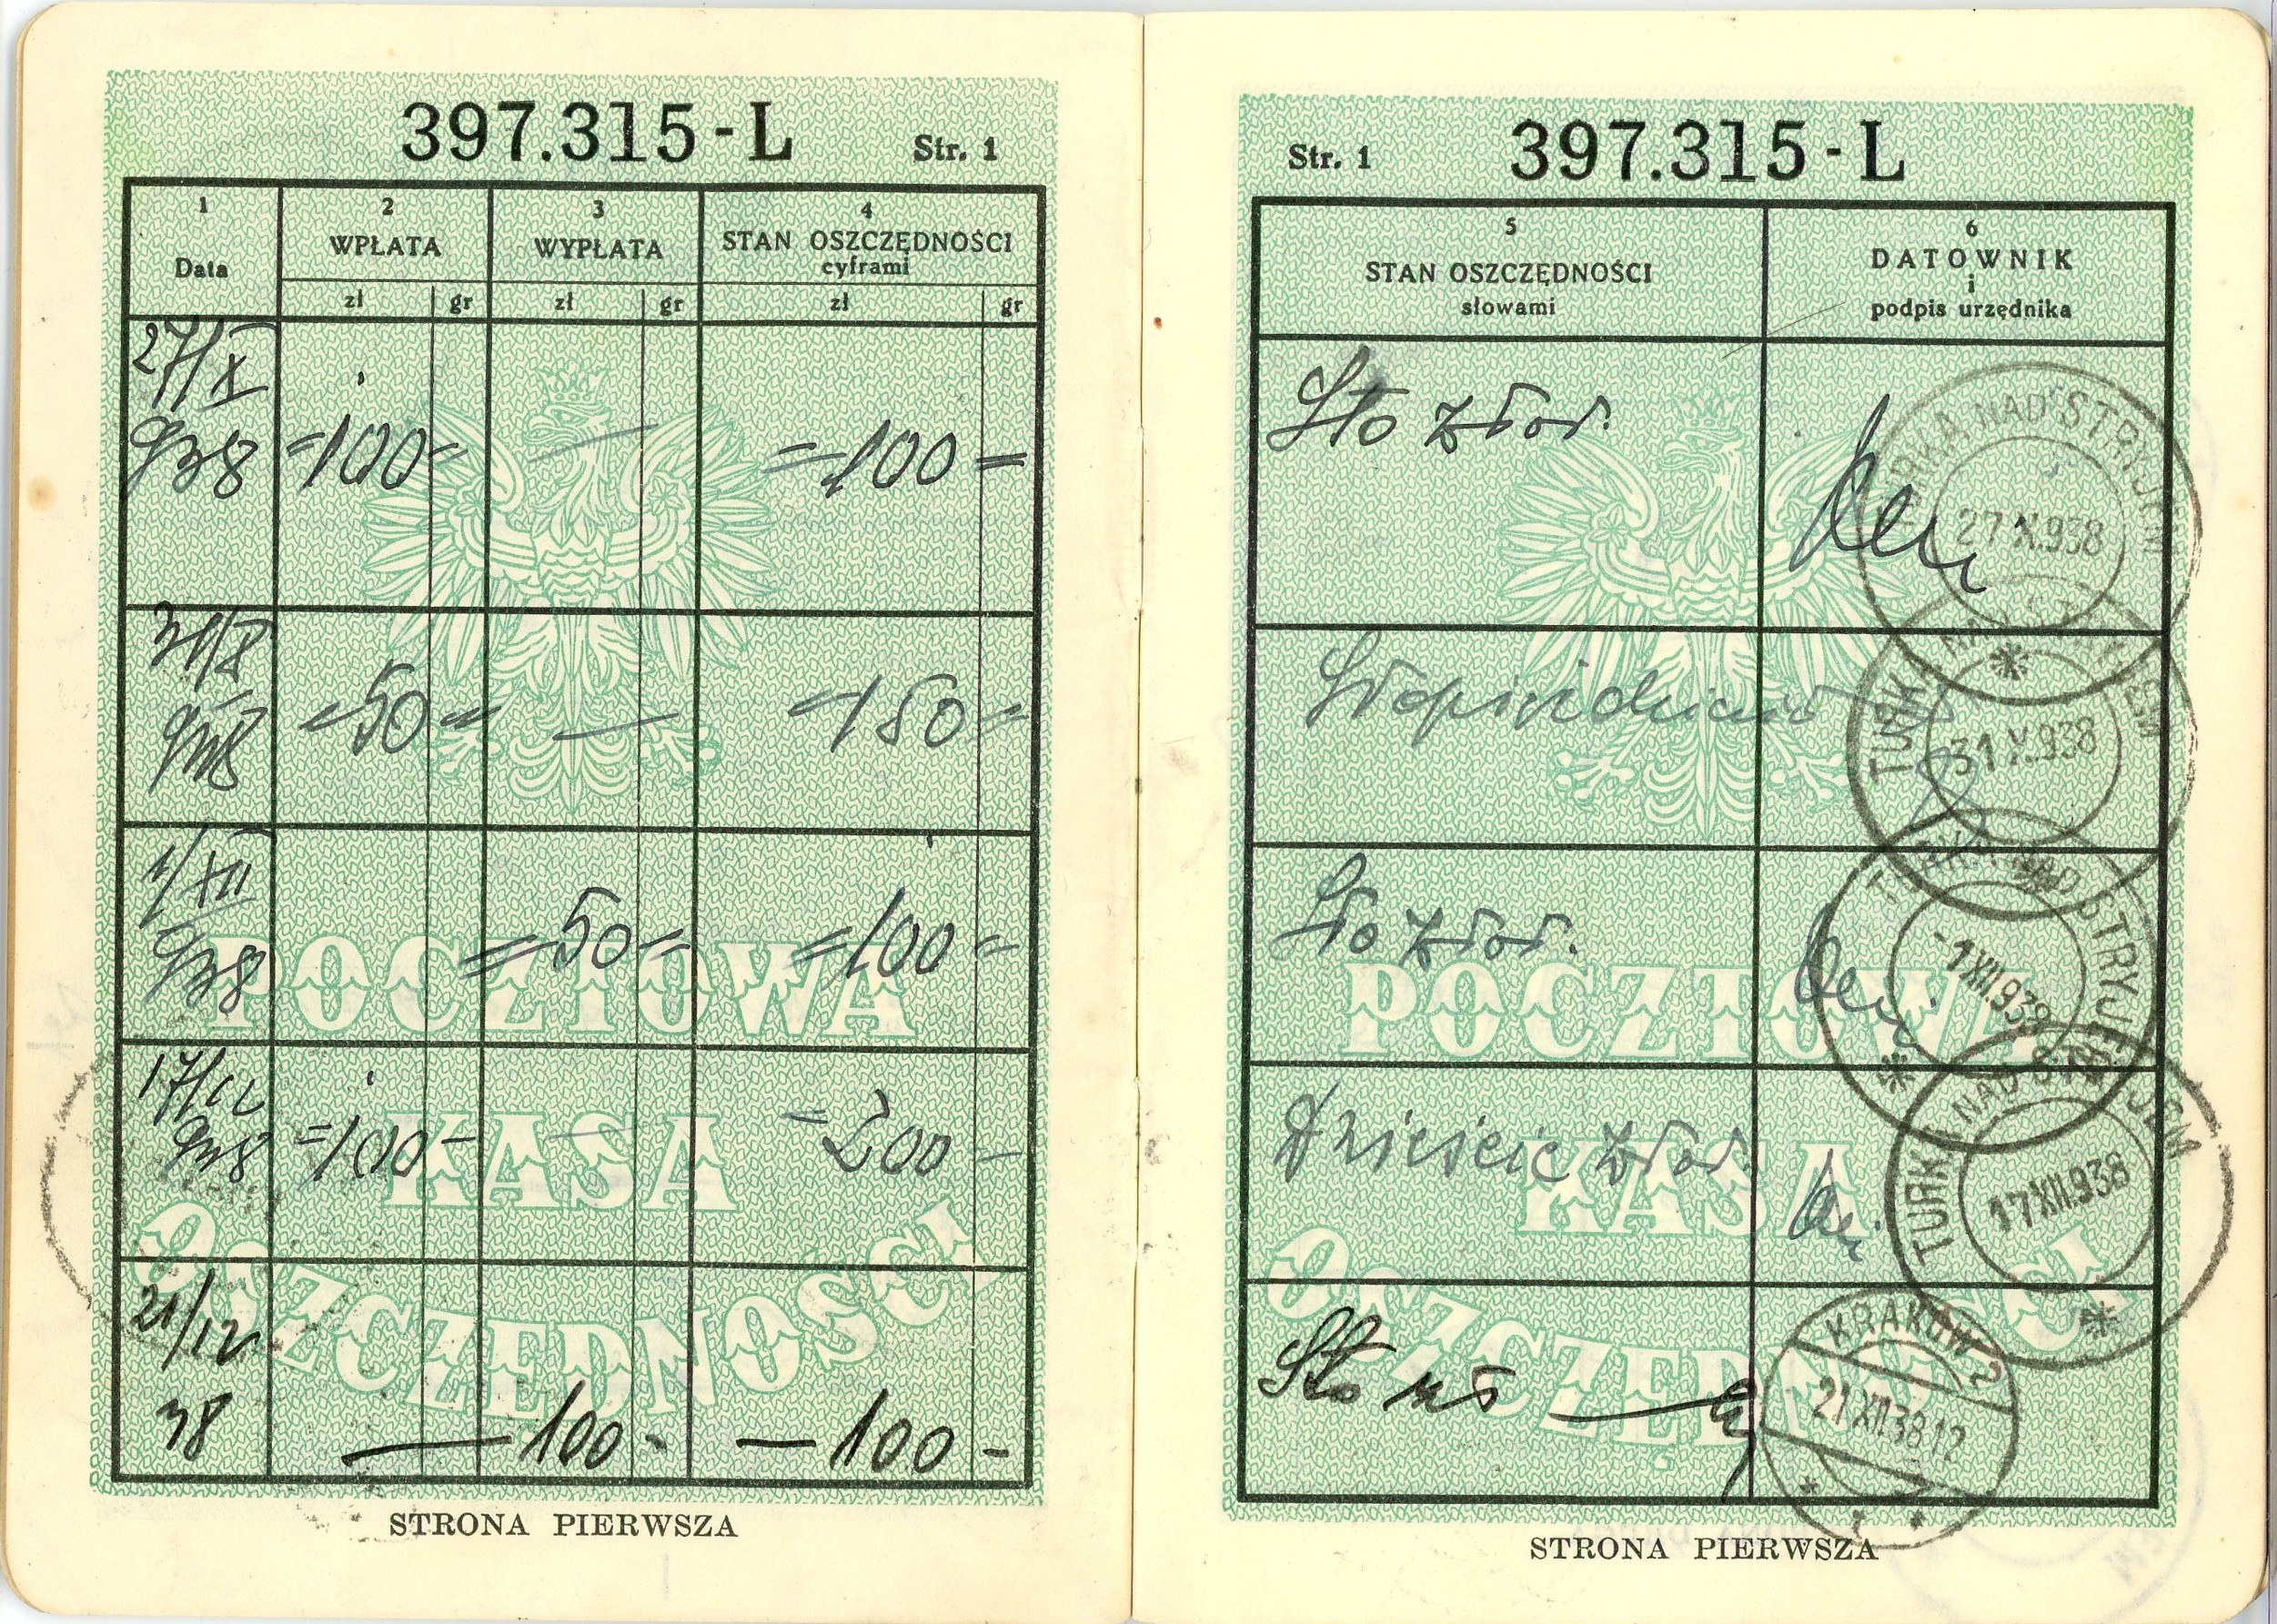 397.315-L Str. 1
1 2 3 4
Data WPŁATA WYPŁATA STAN OSZCZĘDNOŚCI
cyframi
zł gr zł gr zł gr
27/X
938 =100= — =100=
31/X
938 =50= — =150=
1/XII
938 =50= =100=
17/12
938 =100- — -200-
21/12
38 —100- —100-
POCZTOWA
KASA
OSZCZĘDNOŚCI
STRONA PIERWSZA
Str. 1 397.315-L
5 6
STAN OSZCZĘDNOŚCI DATOWNIK
słowami i
podpis urzędnika
Sto złot.
TURKA NAD STRYJEM
27 X.938
Stopięćdziesiąt
TURKA NAD STRYJEM
31 X.938
Sto złot.
TURKA NAD STRYJEM
-1 XII.938
Dwieście złot.
TURKA NAD STRYJEM
17 XII.938
Sto zł
KRAKÓW 2
21 XII 38 12
POCZTOWA
KASA
OSZCZĘDNOŚCI
STRONA PIERWSZA